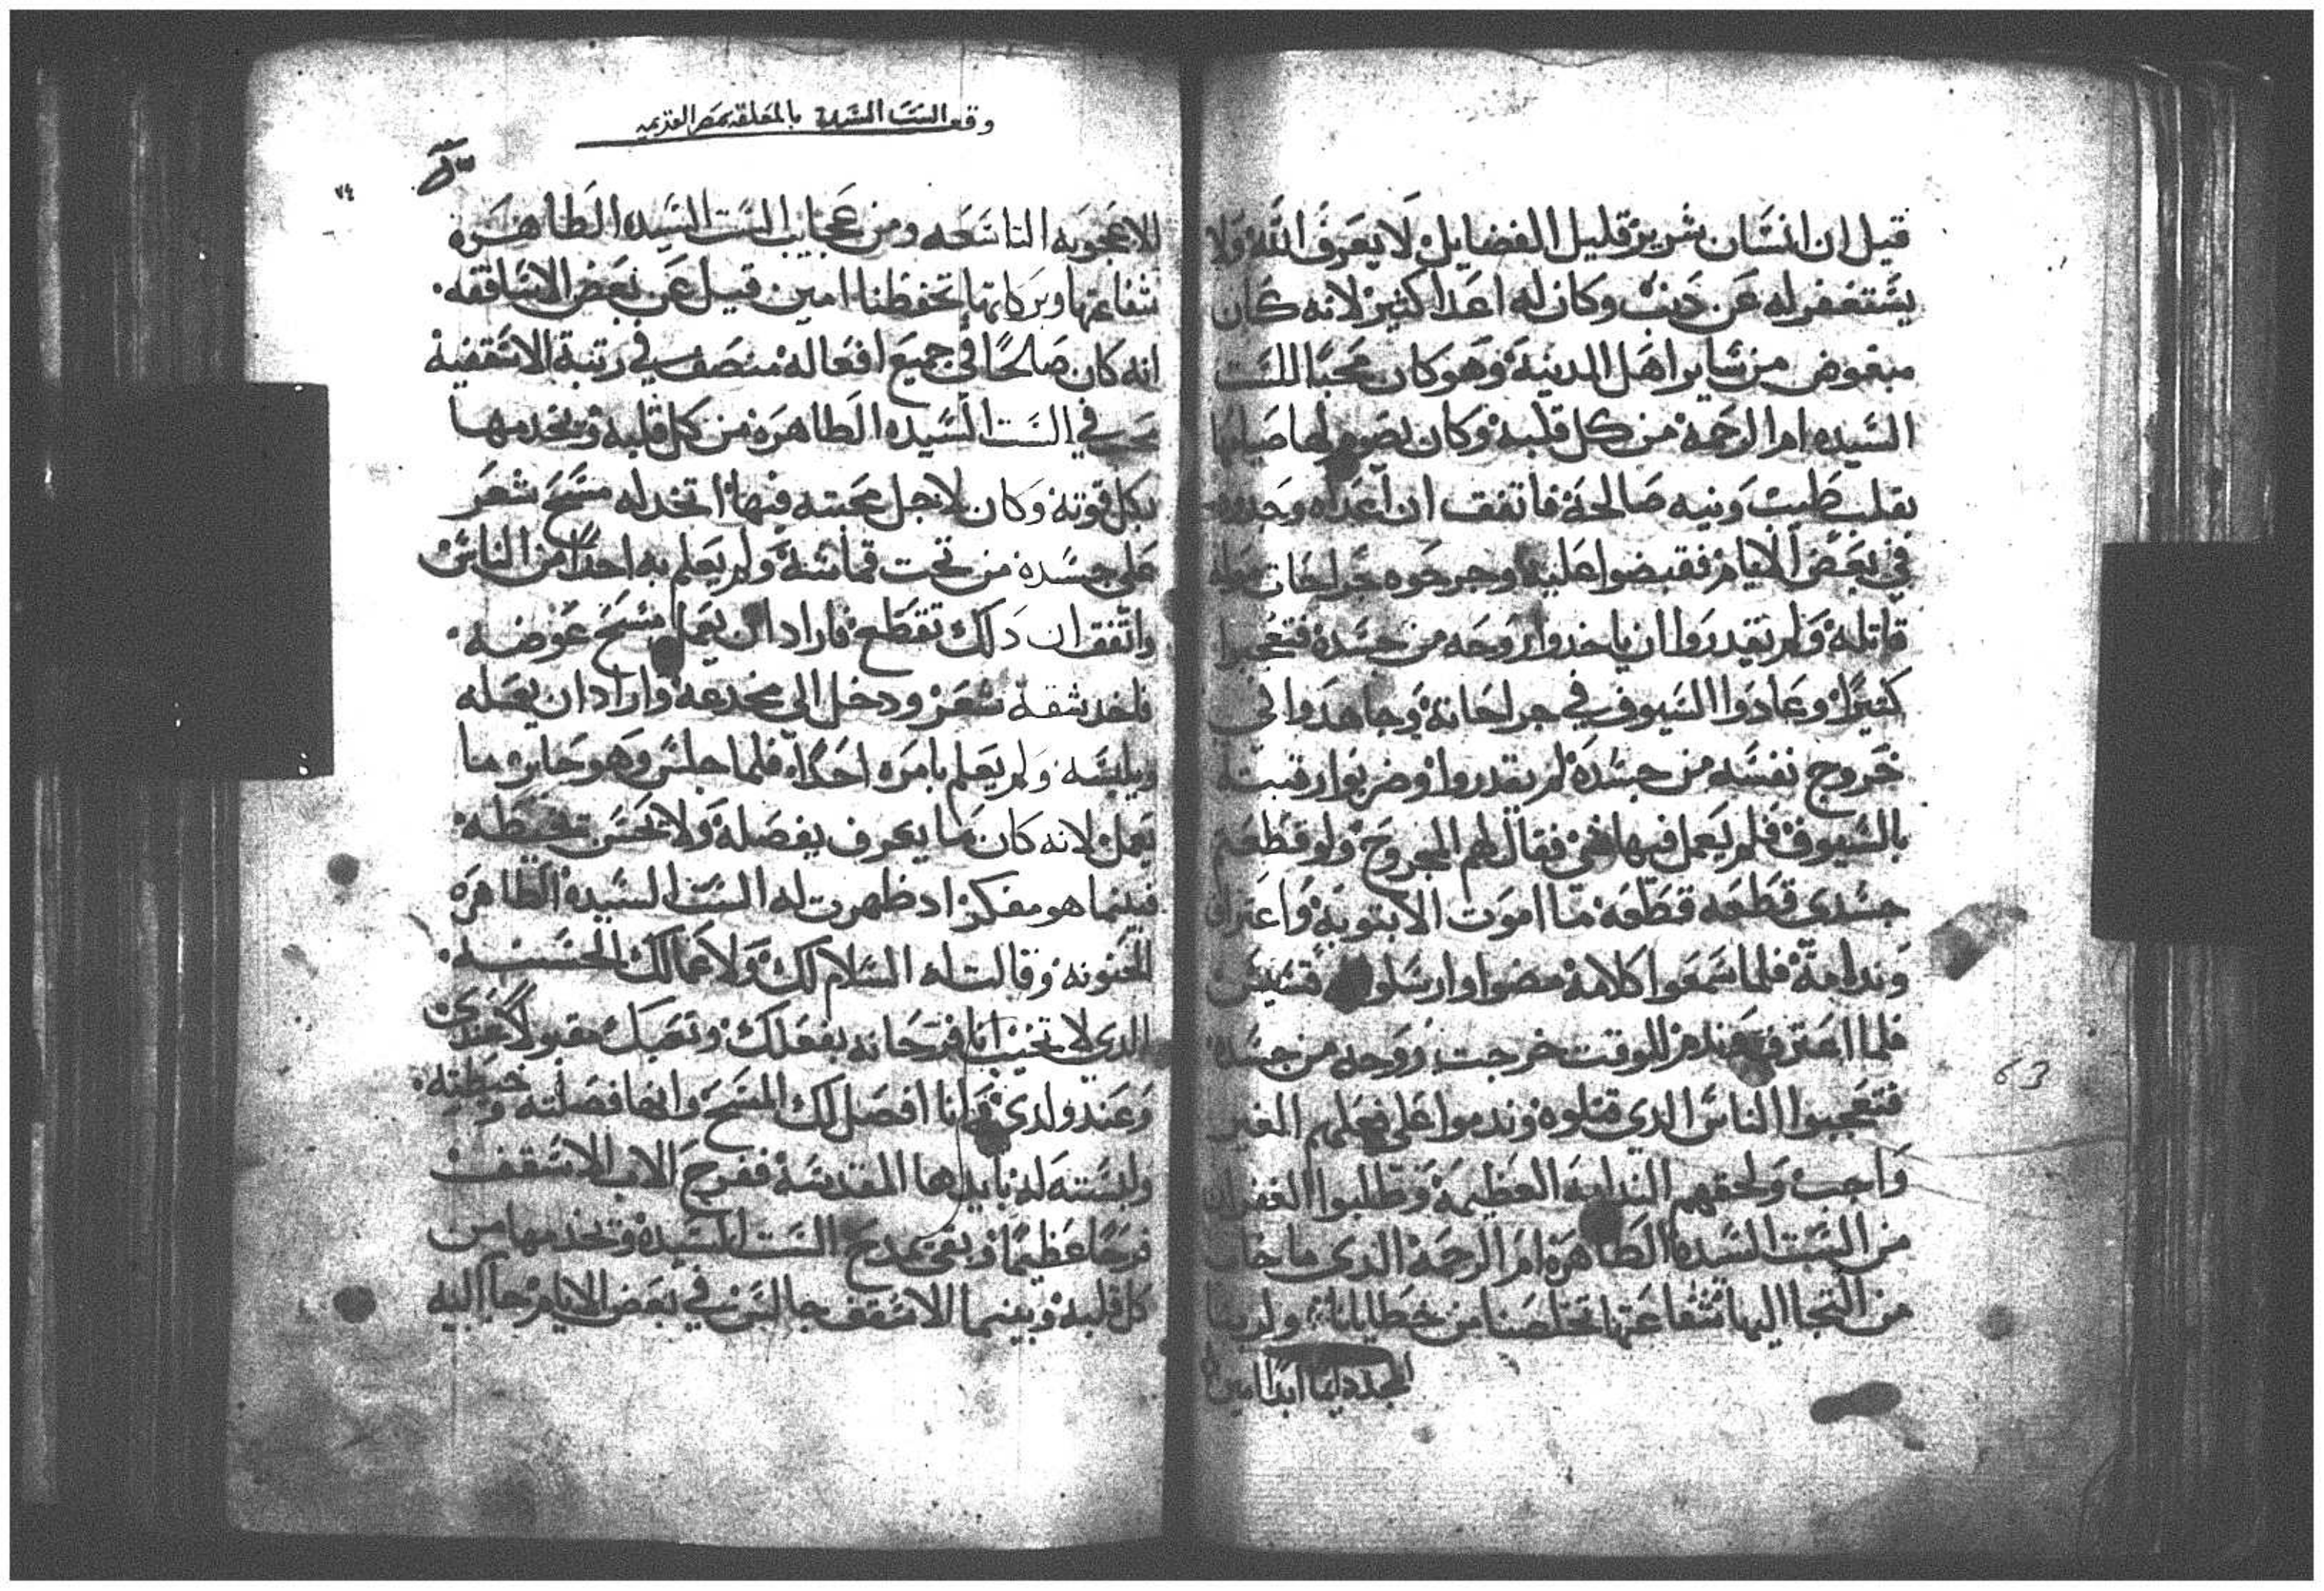 قيل ان انسان شرير قليل الفضايل لا يعرف الله ولا
يستغفر له عن ذنب وكان له اعدا كثير لانه كان
مبغوض من ساير اهل المدينة وهو كان محبا للست
السيده ام الرحمة من كل قلبه وكان يصوم لها صيامها
بقلب طيب ونيه صالحة فاتفق ان اعداه وجدوه
في بعض الايام فقبضوا عليه وجرحوه جراحات
قاتلة ولم يقدروا ان ياخدوا روحه من جسده فتعجبوا
كثيرا وعادوا السيوف في جراحاته وجاهدوا في
خروج نفسه من جسده لم يقدروا وضربوا رقبته
بالسيوف فلم يعمل فيها شي فقال لهم المجروح ولو قطعتم
جسدي قطعه قطعه ما اموت الا بتوبة واعتراف
وندامة فلما سمعوا كلامه مضوا وارسلوا له قسيس
فلما اعترف عندهم للوقت خرجت روحه من جسده
فتعجبوا الناس الدي قتلوه وندموا على فعلهم الغير
واجب ولحقهم الندامة العظيمة وطلبوا الغفران
من الست السيدة الطاهره ام الرحمة الدي ما خاب
من التجا اليها شفاعتها تخلصنا من خطايانا ولربنا
المجد دايما ابدا امين
وقع الست السيدة بالمعلقه بمصر القديمه
٧٤
للاعجوبه التاسعه ومن عجايب الست السيده الطاهره
شفاعتها وبركاتها تحفظنا امين قيل عن بعض الاساقفه
انه كان صالحا في جميع افعاله منصف في رتبة الاسقفية
يحب في الست السيده الطاهره من كل قلبه ويخدمها
بكل قوته وكان لاجل محبته فيها اتخد له مسح شعر
على جسده من تحت قماشه ولم يعلم به احدا من الناس
واتفق ان دلك تقطع فاراد ان يعمل مسح عوضه
فاخد شقة شعر ودخل الى مخدعه واراد ان يفصله
ويلبسه ولم يعلم بامره احدا فلما جلس وهو حاير ما
يعمل لانه كان ما يعرف يفصله ولا يحسن يخيطه
فبينما هو مفكر اد ظهرت له الست السيدة الطاهره
الحنونه وقالت له السلام لك ولاعمالك الحسنه
الدي لا تخيب انا فرحانه بفعلك وتعبك مقبولا عندي
وعند ولدي وانا افصل لك المسح وانها فصلته وخيطته
ولبسته له بايدها المقدسة ففرح الاب الاسقف
فرحا عظيما وبقى يمدح الست السيدة ويخدمها من
كل قلبه وبينما الاسقف جالس في بعض الايام جا اليه
63